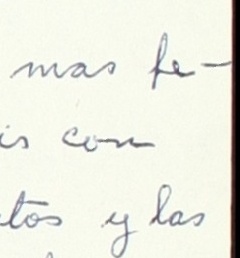 mas fe-
is con
tos y las